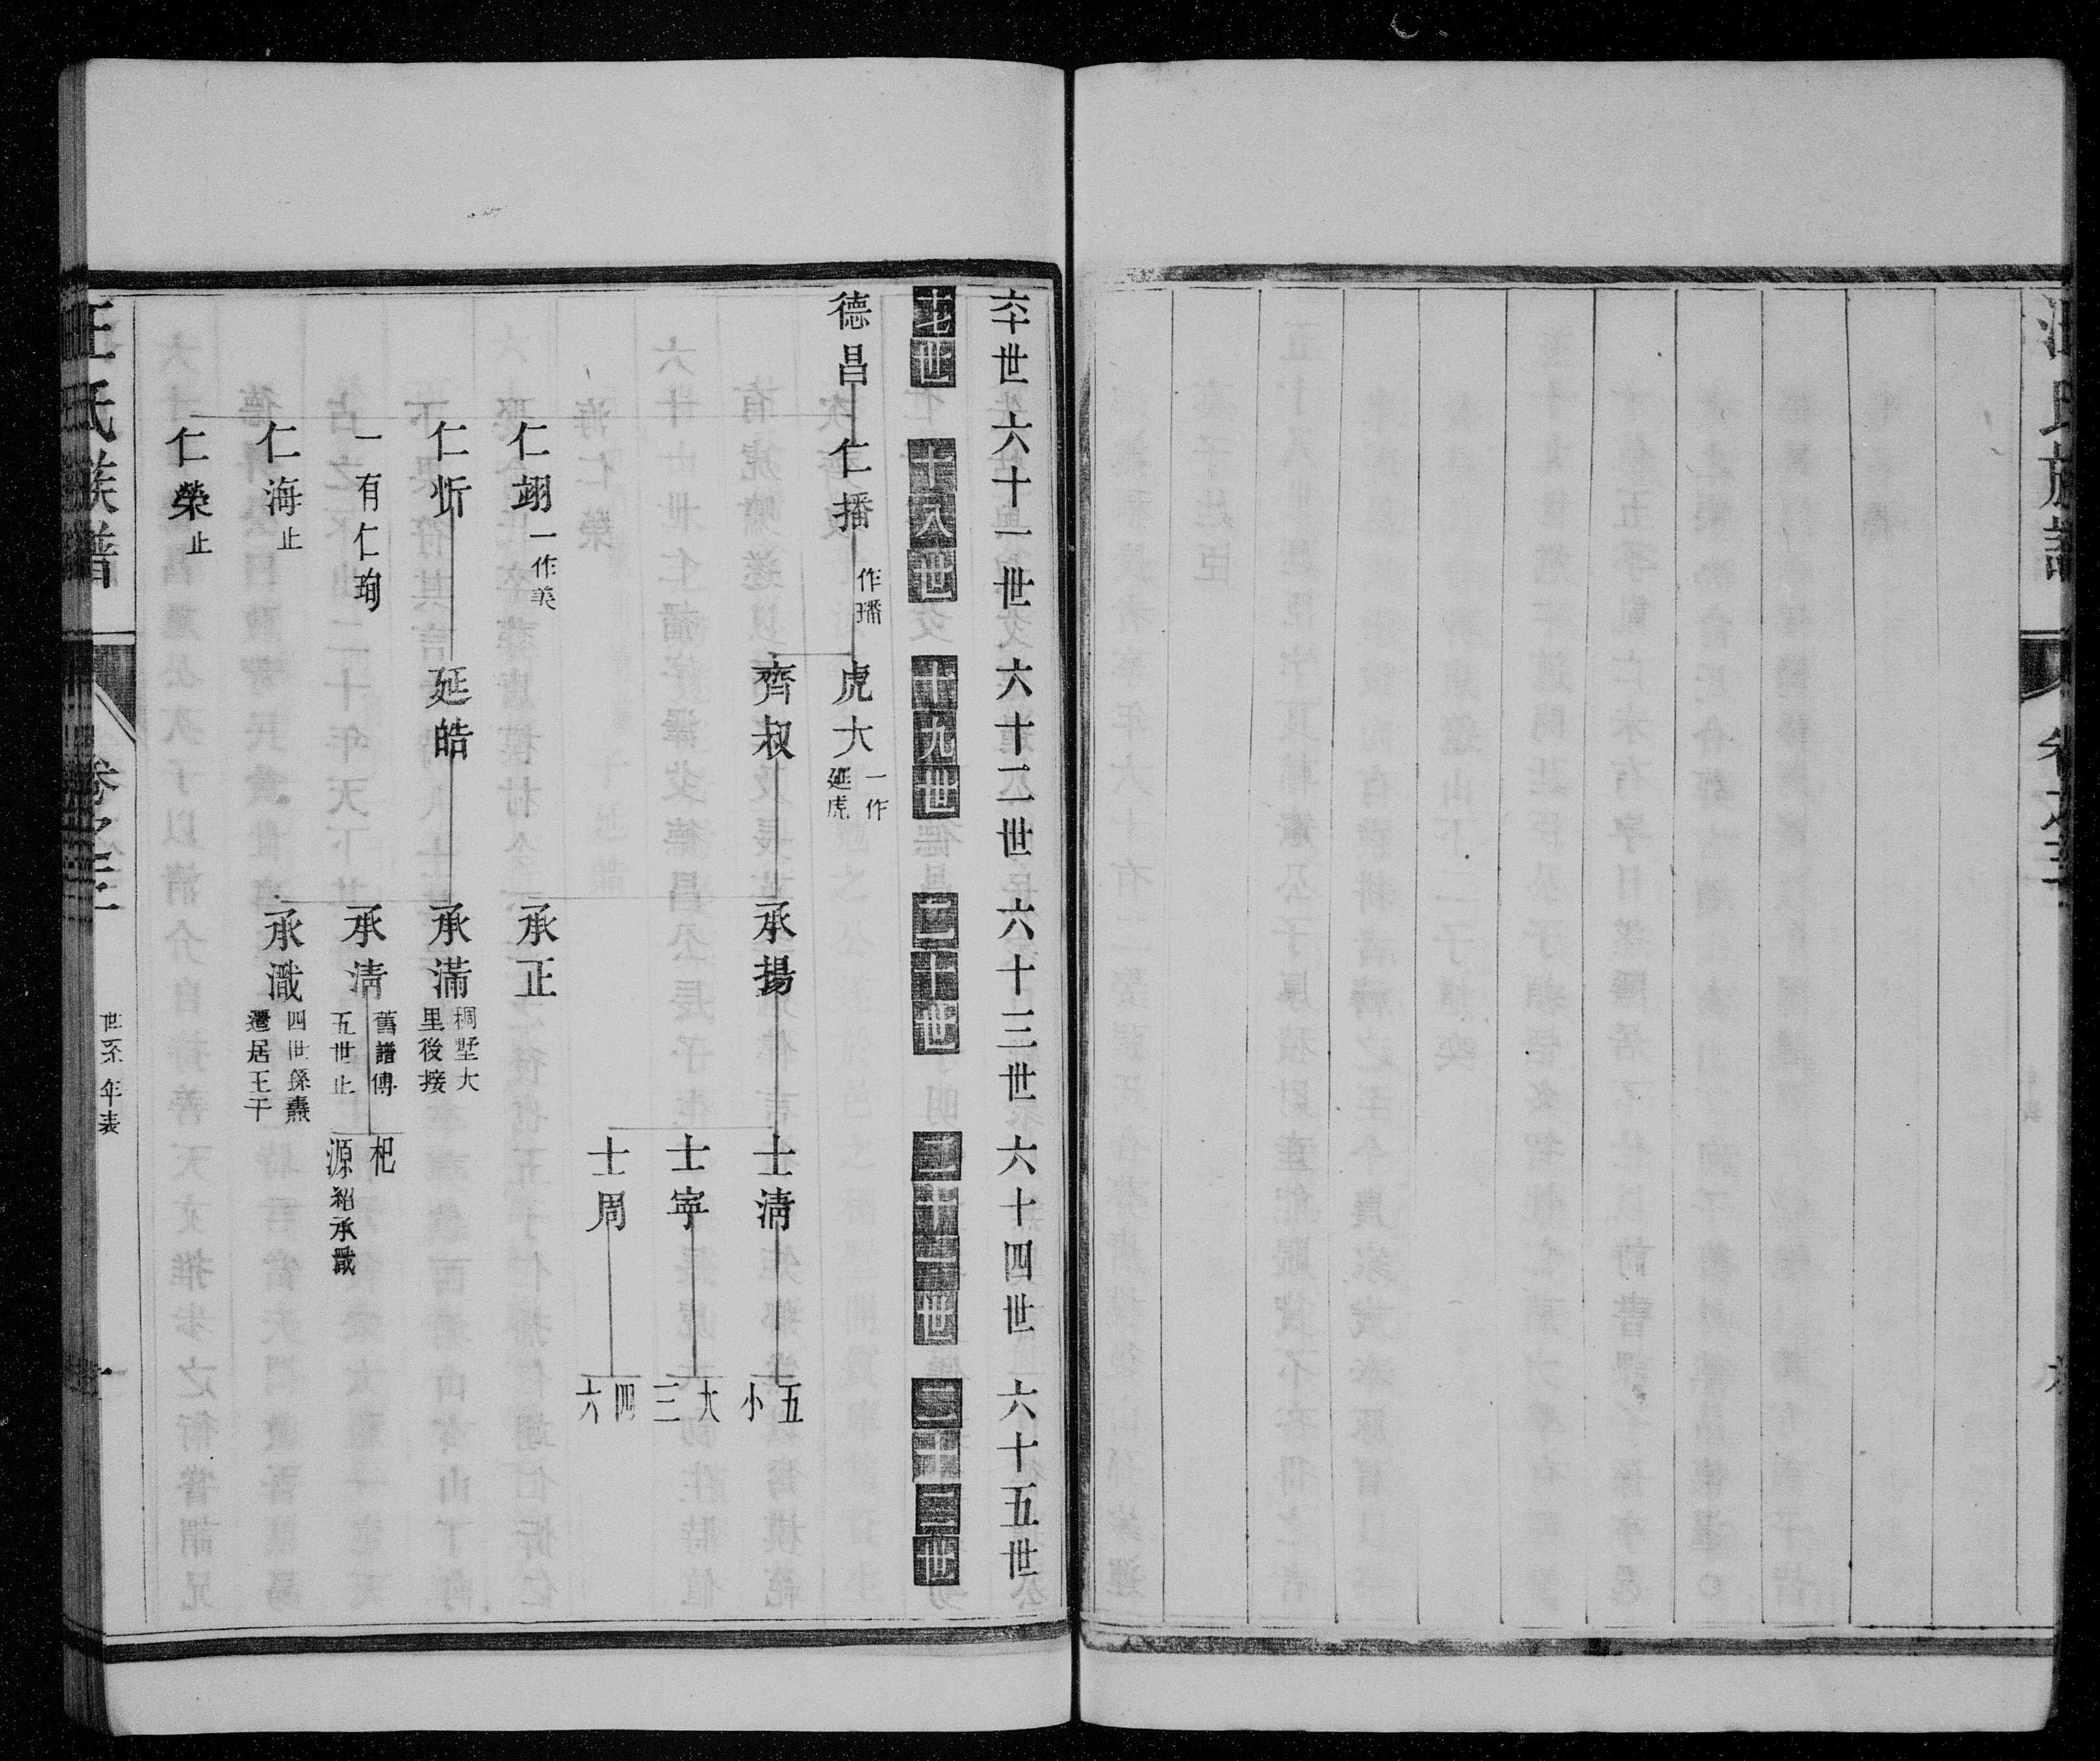 六十世 六十一世 六十二世 六十三世 六十四世 六十五世
十七世 十八世 十九世 二十世 二十一世 二十二世
德昌 仁播 作璠 虎大 一作延虎
齊叔 承揚 士淸 五 小
士寧 大 三
士周 四 六
仁翊 一作美 承正
仁忻 延皓 承滿 稠墅大里後接
一有仁珣 承淸 舊譜傳五世止 杞 源 紹承濈
仁海 止 承濈 四世孫燾遷居王干
仁榮 止
汪氏族譜 卷之三 世系年表 一